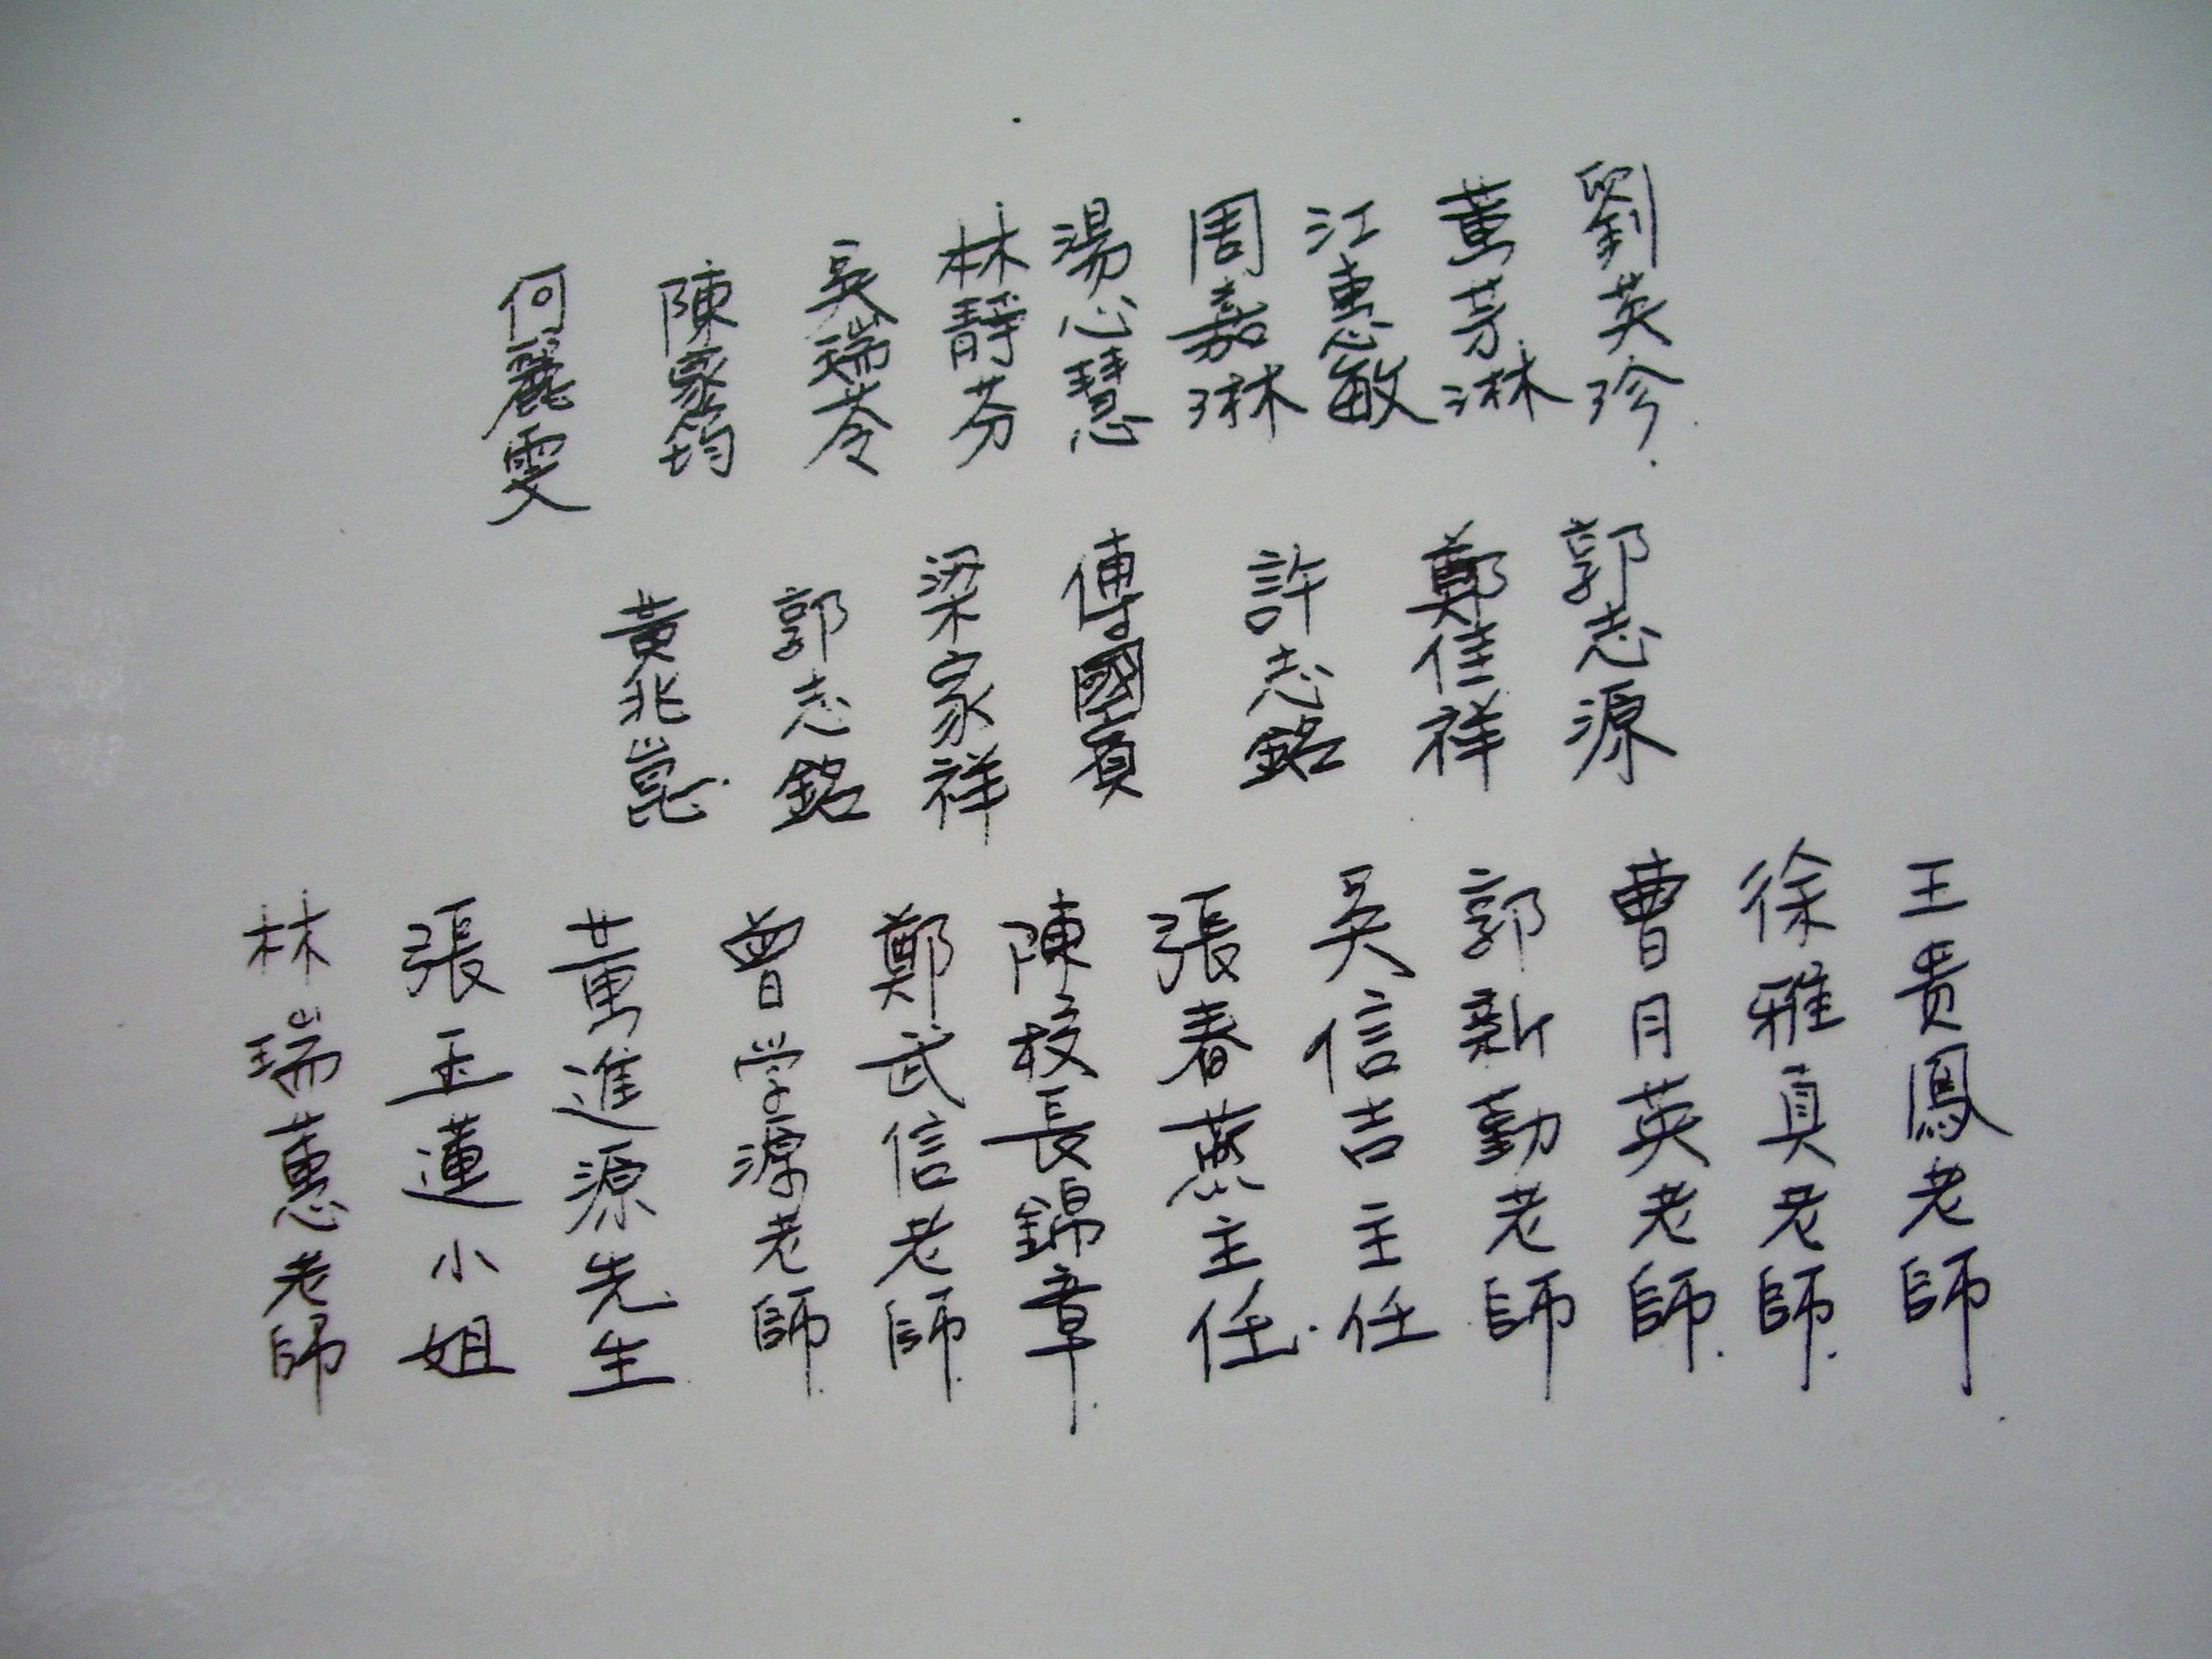 劉英珍
董芳淋
江惠敏
周嘉淋
湯心慧
林靜芬
吳瑞苓
陳家筠
何麗雯
郭志源
鄭佳祥
許志銘
傅國賓
梁家祥
郭志銘
黃兆崑
王貴鳳老師
徐雅真老師
曹月英老師
郭新勤老師
吳信吉主任
張春燕主任
陳校長錦章
鄭武信老師
曾学源老師
董進源先生
張玉蓮小姐
林瑞蕙老師